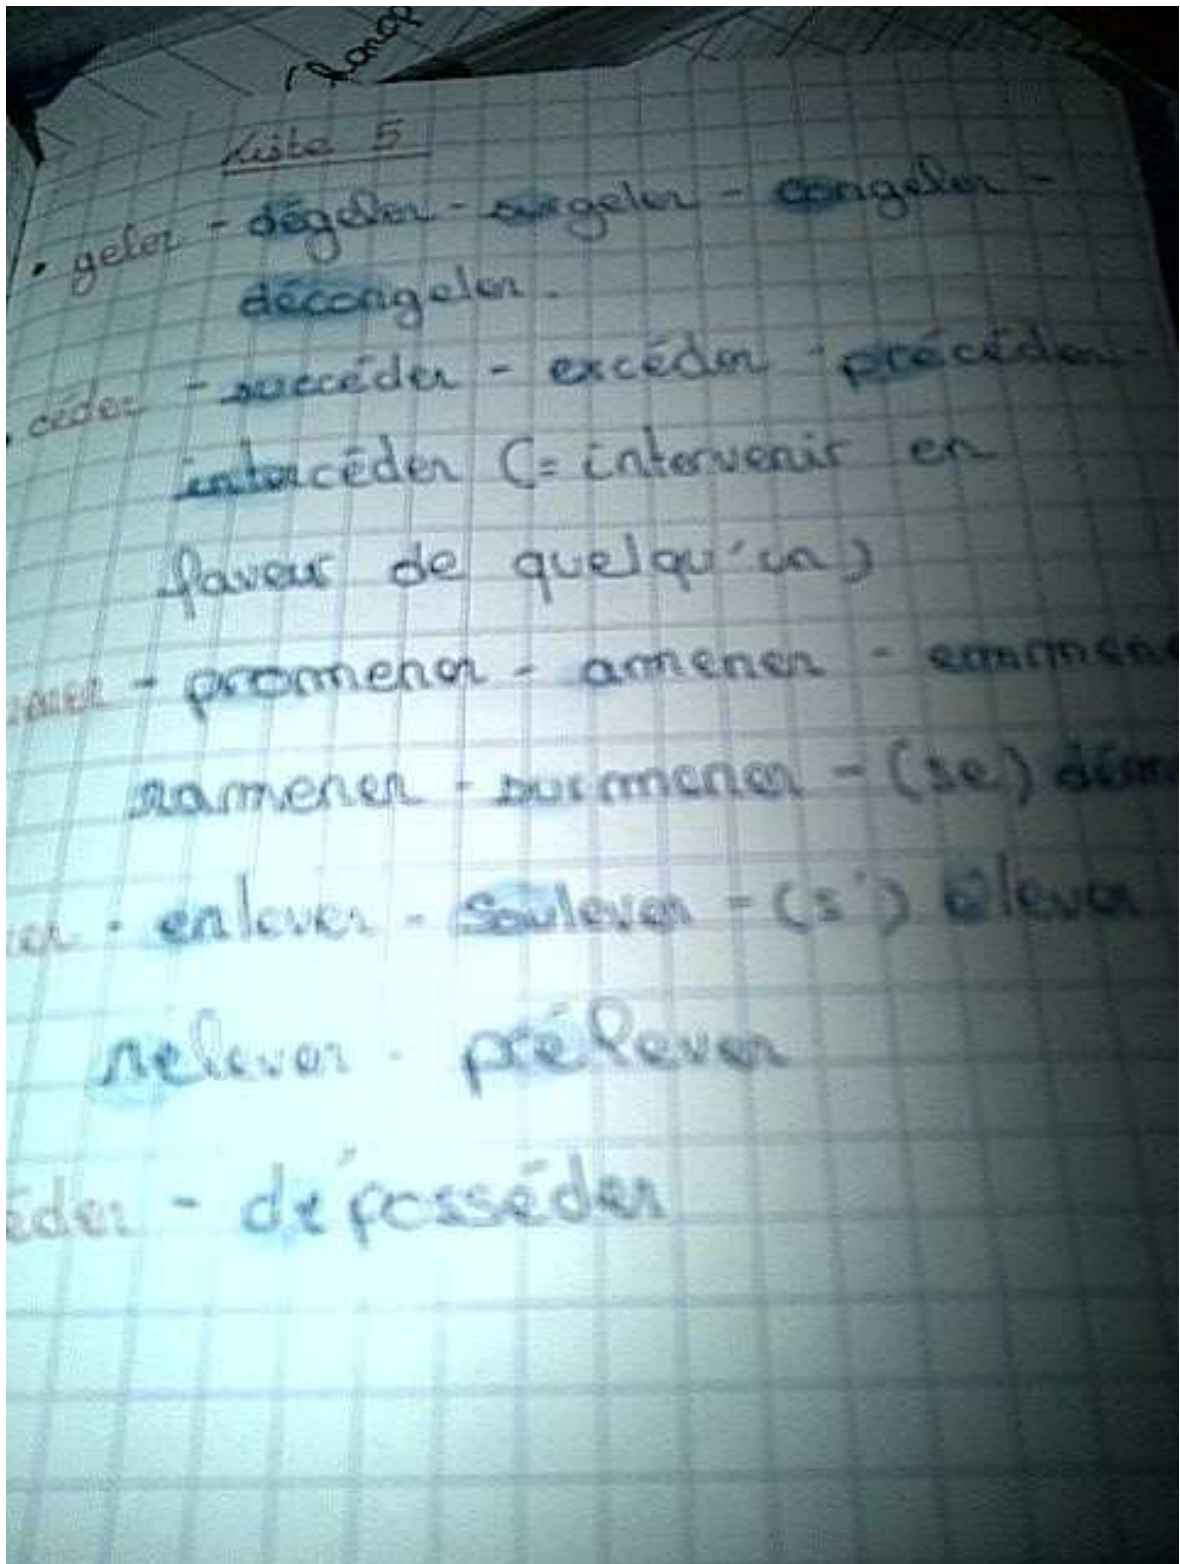 Liste 5
• geler - dégeler - surgeler - congeler -
décongeler.
• céder - succéder - excéder - précéder -
intercéder (= intervenir en
faveur de quelqu'un)
- promener - amener - emmene
ramener - surmener - (se) dém
er - enlever - soulever - (s') élever
relever - prélever
éder - déposséder